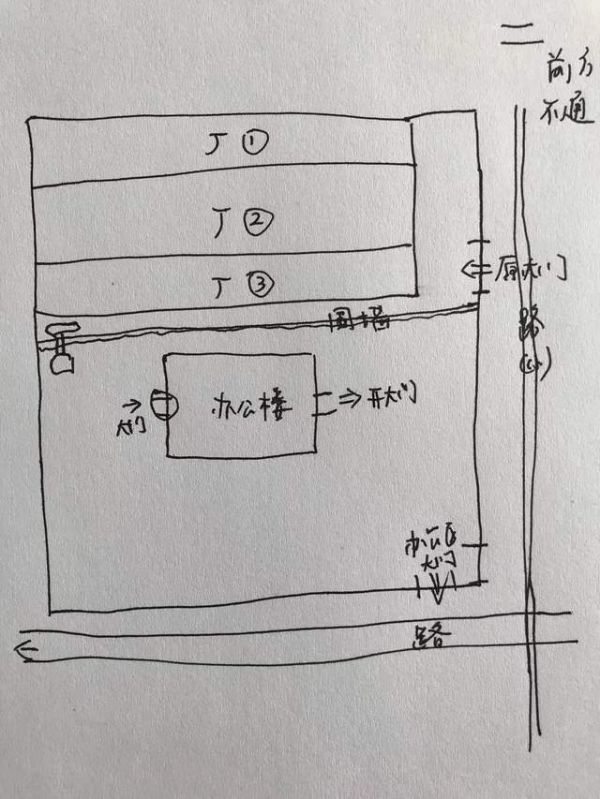 二
前方
不通
厂①
厂②
厂③
原大门
围墙
路
办公楼
⇒开大门
→
大门
办公区
大门
路